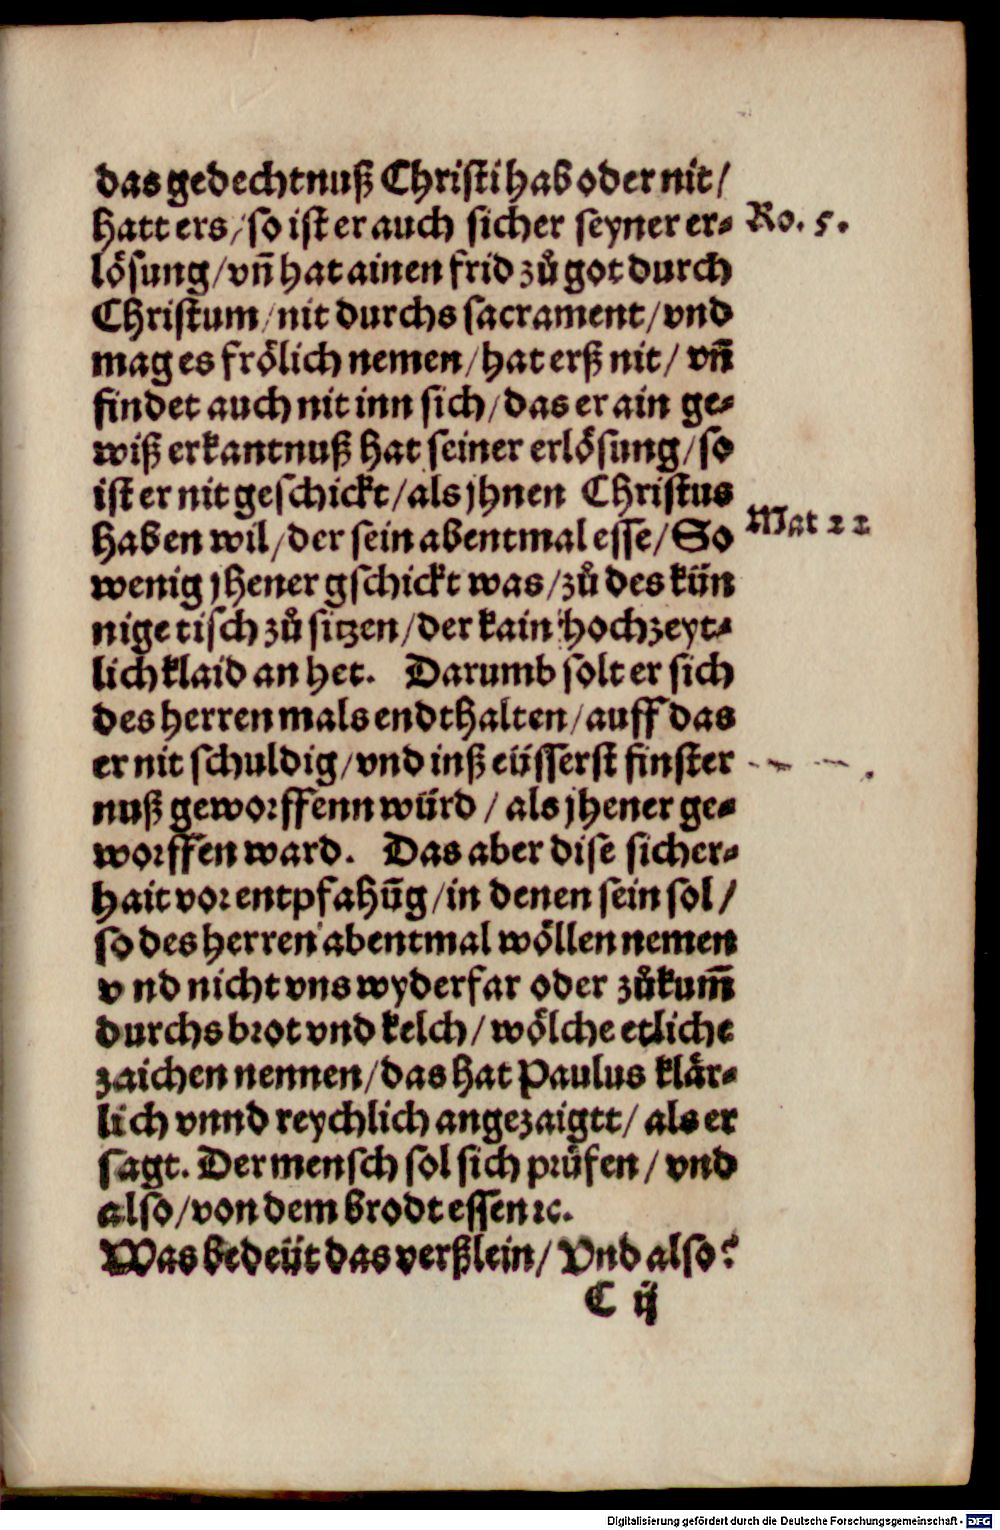 das gedechtnuß Christi hab oder nit/
hatt ers/so ist er auch sicher seyner er⸗
lösung/vñ hat ainen frid zů got durch
Christum/nit durchs sacrament/vnd
mag es frölich nemen/hat erß nit/ vñ
findet auch nit inn sich/das er ain ge⸗
wiß erkantnuß hat seiner erlösung/so
ist er nit geschickt/als jhnen Christus
haben wil/der sein abentmal esse/So
wenig jhener gschickt was/zů des kün
nige tisch zů sitzen/der kain hochzeyt⸗
lich klaid an het. Darumb solt er sich
des herren mals endthalten/auff das
er nit schuldig/vnd inß eüsserst finster
nuß geworffenn würd / als jhener ge⸗
worffen ward. Das aber dise sicher⸗
hait vor entpfahūg/in denen sein sol/
so des herren abentmal wöllen nemen
v nd nicht vns wyderfar oder zůkum̄
durchs brot vnd kelch/ wölche etliche
zaichen nennen/das hat Paulus klär⸗
lich vnnd reychlich angezaigtt/ als er
sagt. Der mensch sol sich prüfen/ vnd
also/von dem brodt essen ꝛc.
Was bedeüt das verßlein/ Vnd also?
C ij
Ro. 5.
Mat 22
Digitalisierung gefördert durch die Deutsche Forschungsgemeinschaft - DFG